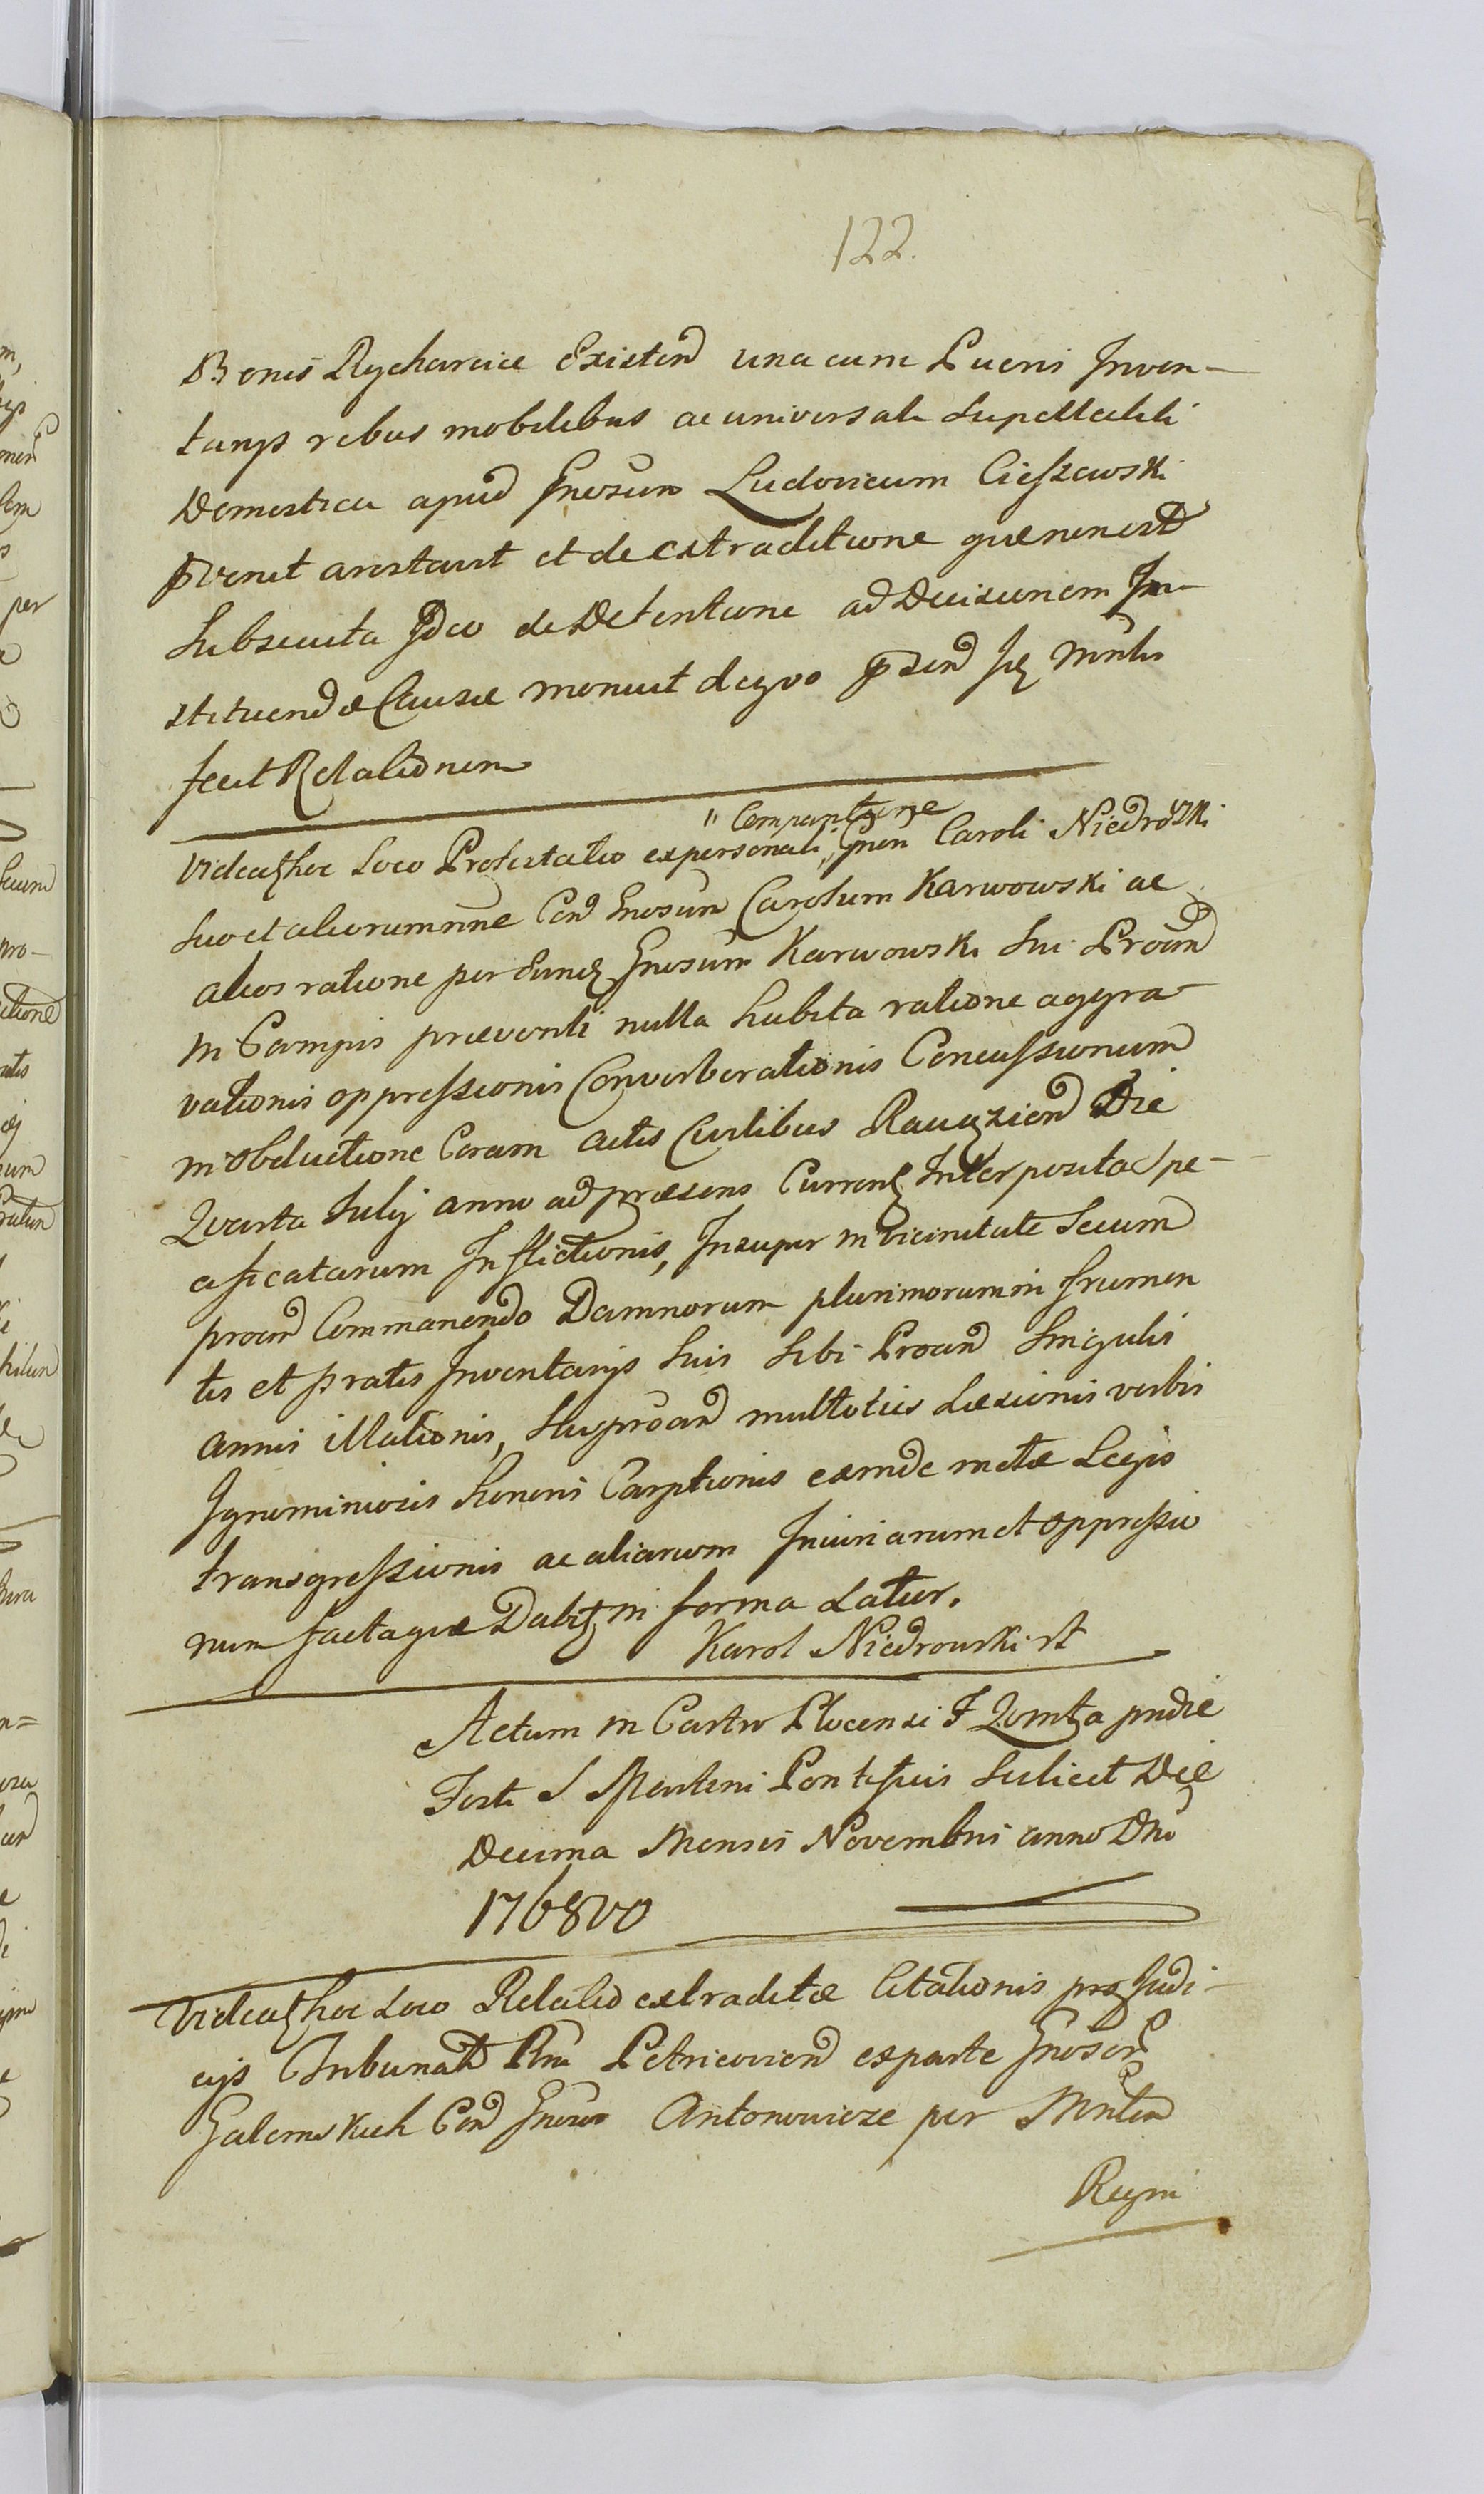 122.
Bonis Rycharcice Existen una cum Pueri Inven-
tarys rebus mobilibus ac universali Supellectili
Domestica apud Gnosum Ludovicum Cieszewski
pvenit arestavit et de extraditione quae non est
Subsecuta Ideo de Detentione ad Decisionem In-
stituendae Causae monuit de quo psen Mnlis
fecit Relationem
Videat hoc Loco Protestatio ex personali "Comparitione" Gnen Caroli Niedroski
suo et aliorum nne Con Gnosum Carolum Karwowski ac
alios ratione per Eund Gnosum Karwowski Sui Proan
in Campis praeventi nulla habita ratione aggra-
vationis oppressionis Converberationis Concussionum
in obductione Coram actis Curlibus Raviazien Die
Quarta July anno ad praesens Curren Interposita Spe-
cificatarum Inflictionis, Insuper in vicinitate Secum
proan Commanendo Damnorum plurimorum in frumen
tis et pratis Inventarys Suis Sibi Proan Singulis
annis illationis, Suiproan multoties Laesionis verbis
Ignominiosis honoris Carptionis eamde metae Legis
transgressionis ac aliarum Iniuriarum et oppressio
num facta quae Dabit in forma Latior.
Karol Niedrowski st
Actum in Castro Plocensi F Quinta pridie
Festi S Martini Pontificis Scilicet Die
Decima Mensis Novembris anno Dni
1768vo
Videat hoc Loco Relatio extraditae Citationis pro Judi-
cys Tribunalis Rni Petricovien ex parte Gnosor
Galemskich Con Gnosos Antonowicze per Mnlem
Regni